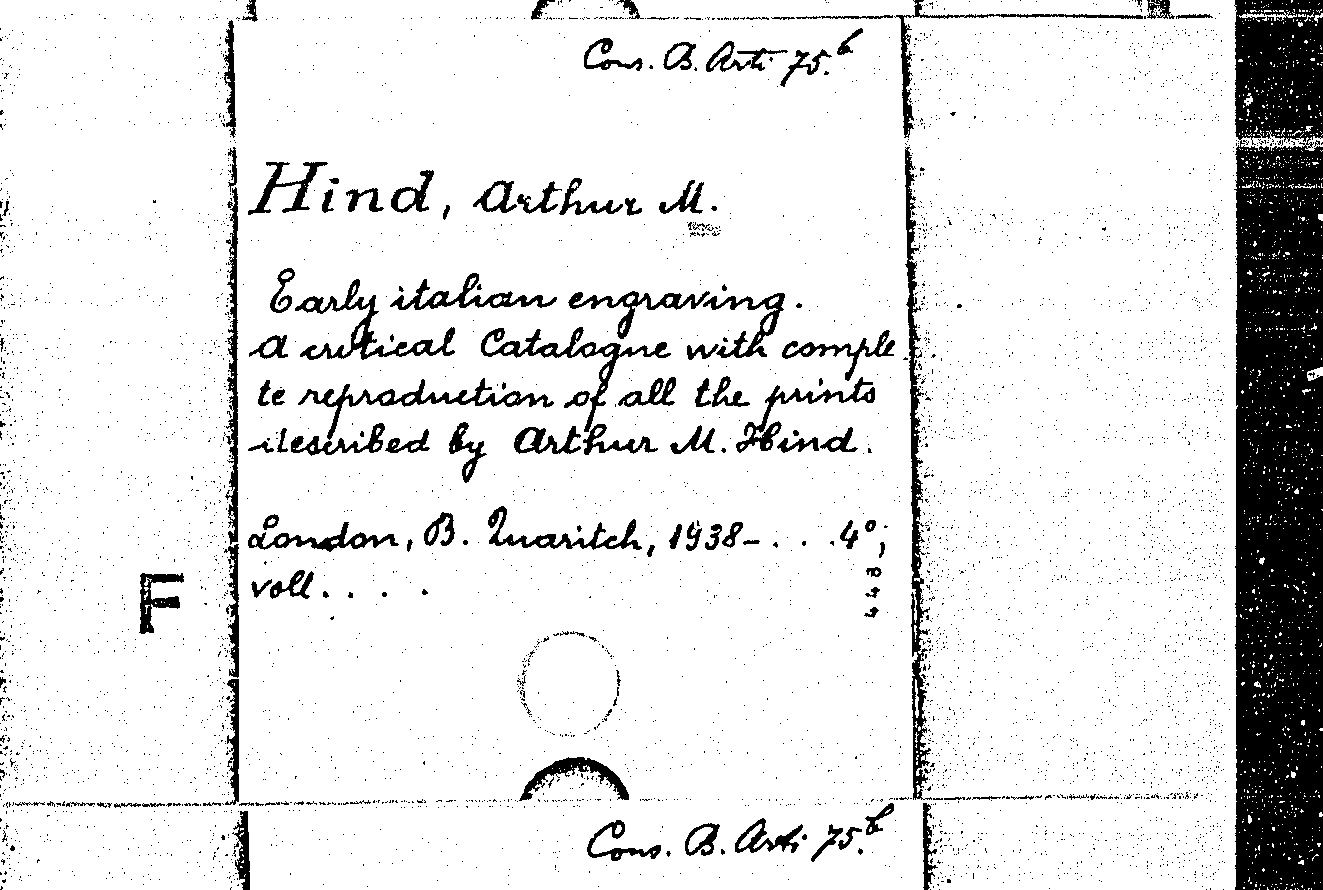 Cons. B. Arti 75.b
Hind, Arthur M.
Early italian engraving.
A critical Catalogue with comple
te reproduction of all the prints
described by Arthur M. Hind.
London, B. Quaritch, 1938- . . . 4°;
voll. . . . .
F
Cons. B. Arti 75.b